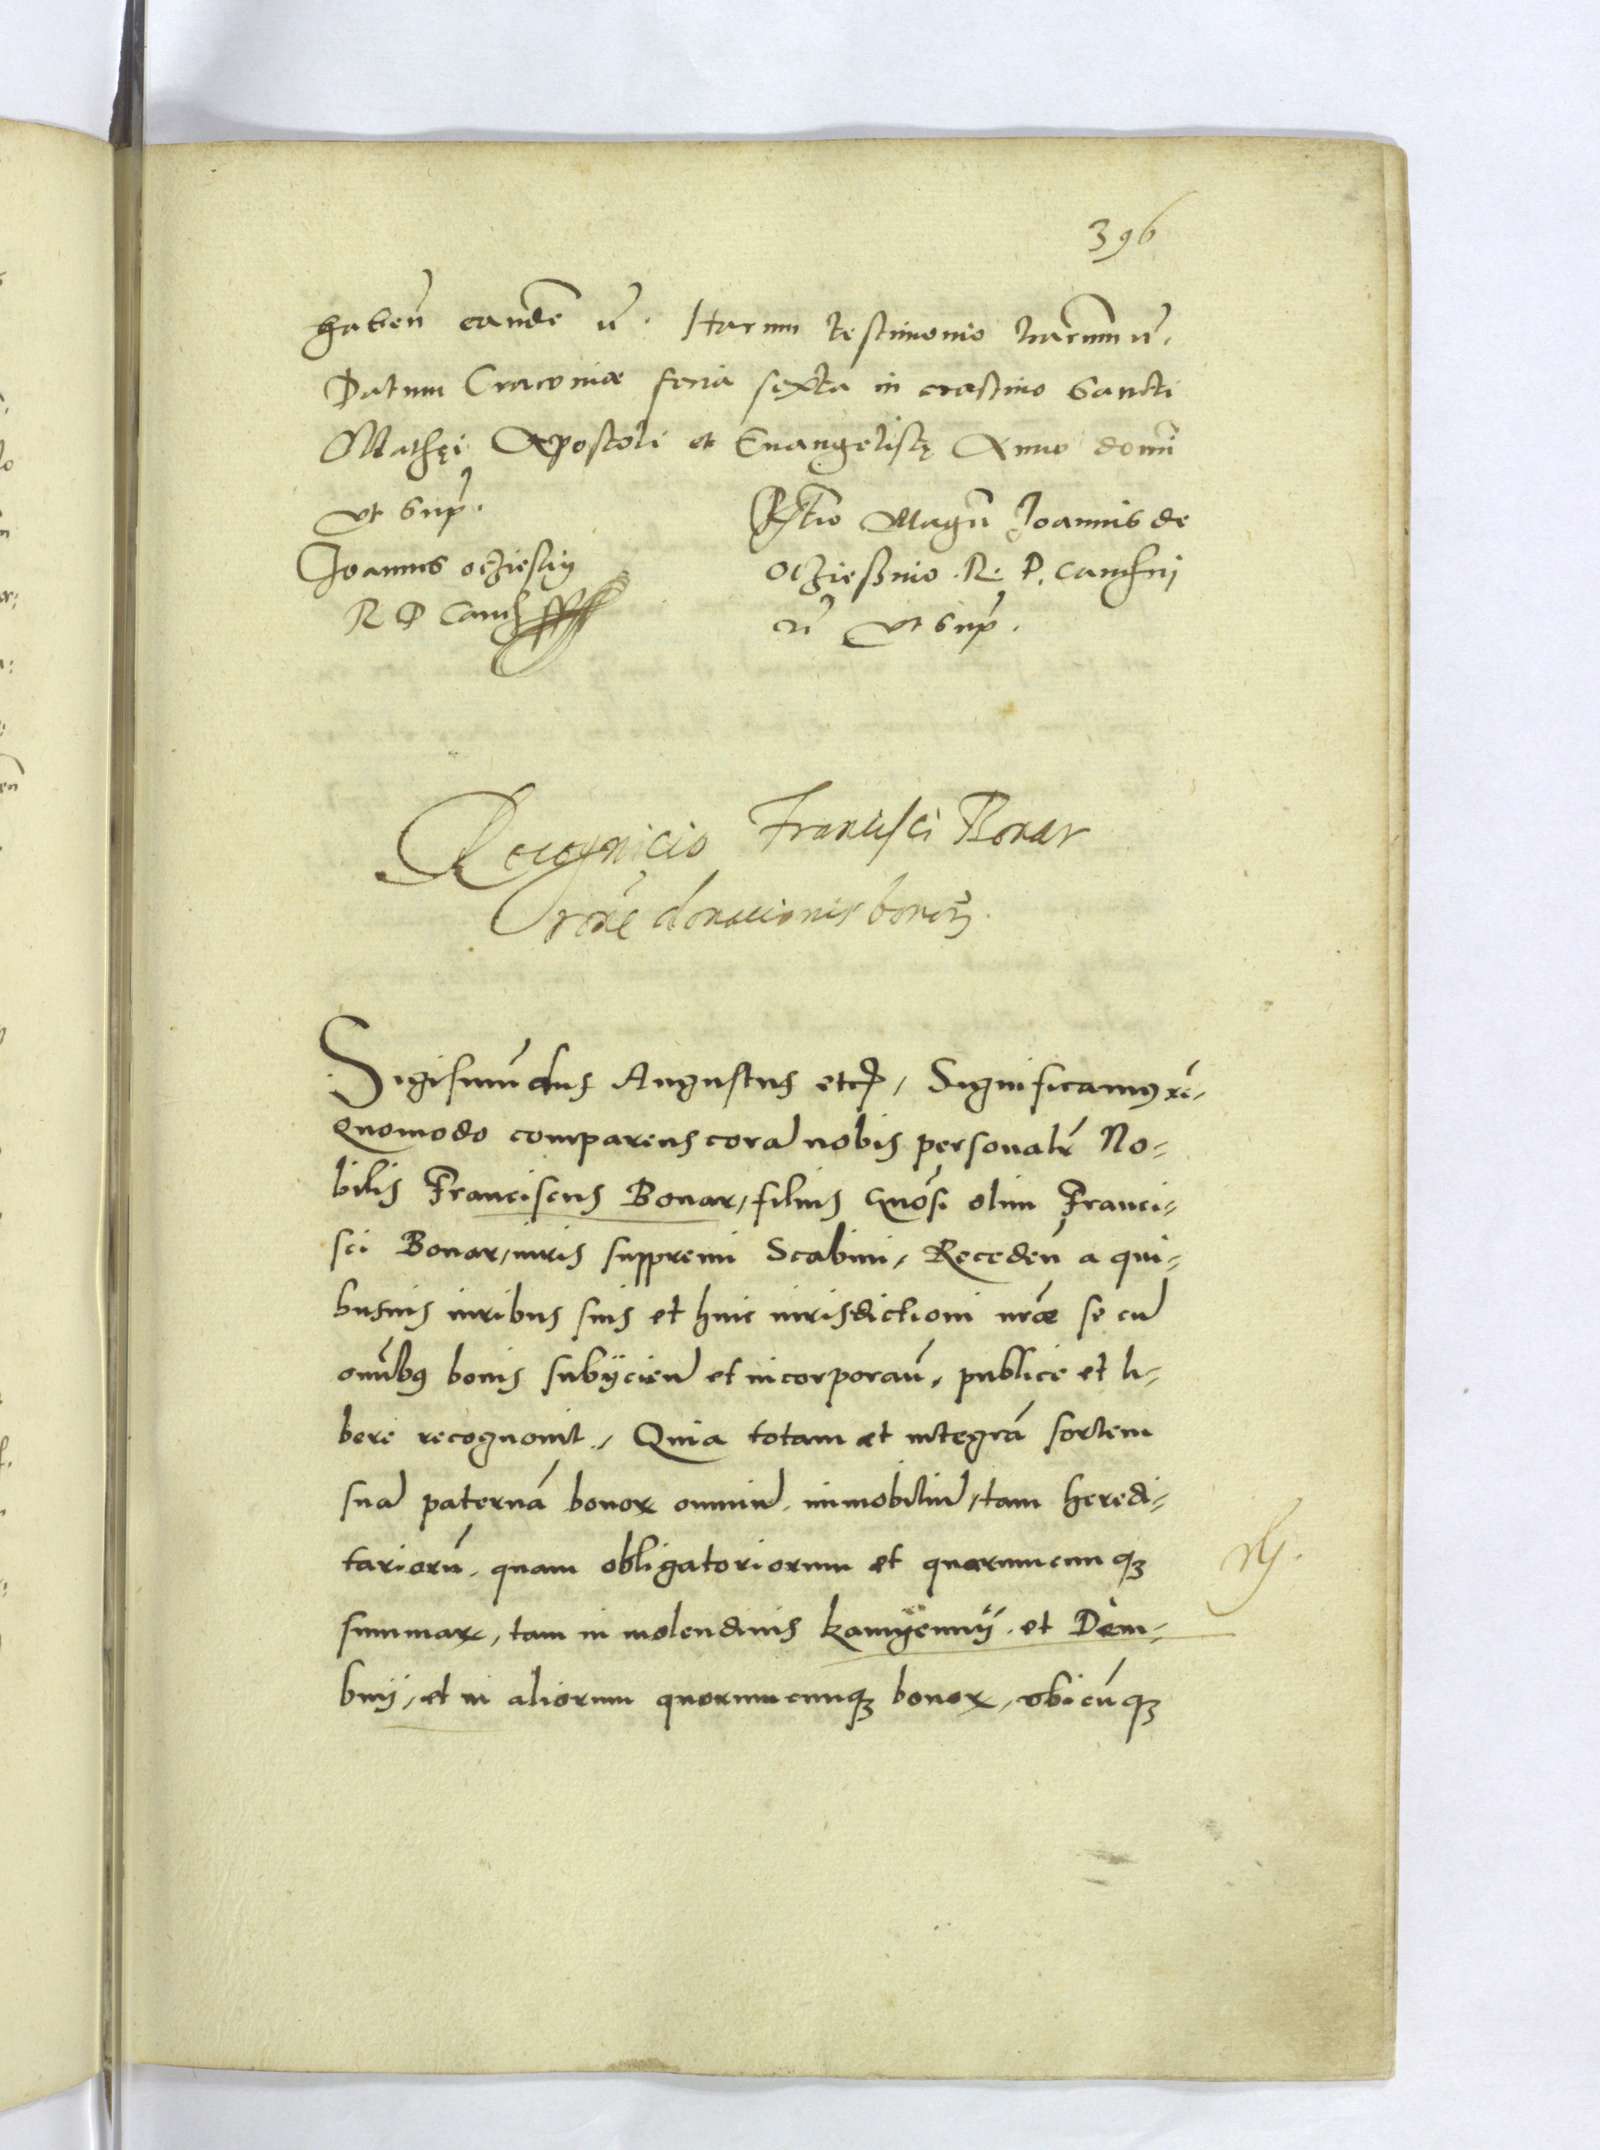 396
haben̄ eandē etc̄. Harum testimonio l̄rarum etc̄.
Datum Cracoviæ feria sexta in crastino Sancti
Mathęi Apostoli et Evangelistę Anno domī
ut sup̄.
Joannes oczieskij
R P Canc
Rl̄tio Maḡci Joannis de
Oczieschino. R. P. Canc̄rij
etc̄ ut sup̄.
Recognicio Francisci Bonar
rōne donacionis bonor̄.
Sigismūdus Augustus etc̄, Significamus etc̄,
Quomodo comparens corā nobis personalr̄ No-
bilis Franciscus Bonar, filius Gnōsi olim Franci-
sci Bonar, iuris suppremi Scabini, Recedēn a qui-
busuis iuribus suis et huic iurisdictioni nr̄æ se cū
om̄ibꝰ bonis subijcien̄ et incorporan̄, publice et li-
bere recognouit, Quia totam et integrā sortem
suā paternā bonoꝝ omniū immobiliū, tam heredi-
tariorū, quam obligatoriorum et quarumcunqꝫ
summaꝝ, tam in molendinis kamÿennÿ et Dem-
bnij, et in aliorum quorumcunqꝫ bonoꝝ, vbicūqꝫ